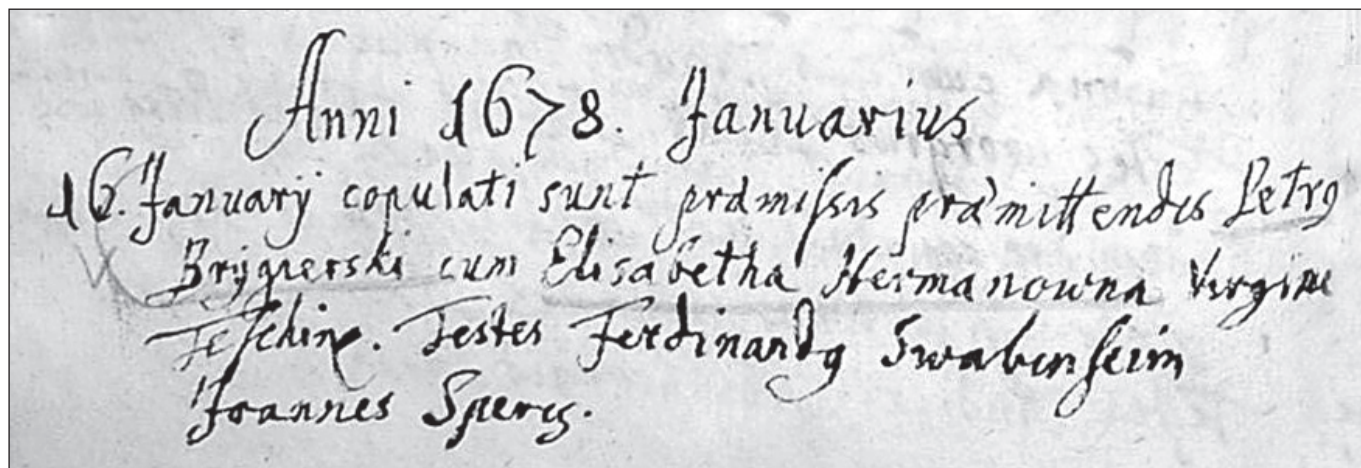 Anni 1678. Januarius
16. Januarij copulati sunt præmissis præmittendis Petrus
Brygierski cum Elisabetha Hermanowna Virgine
Teschin. Testes Ferdinandus Swabenseim
Joannes Speris.